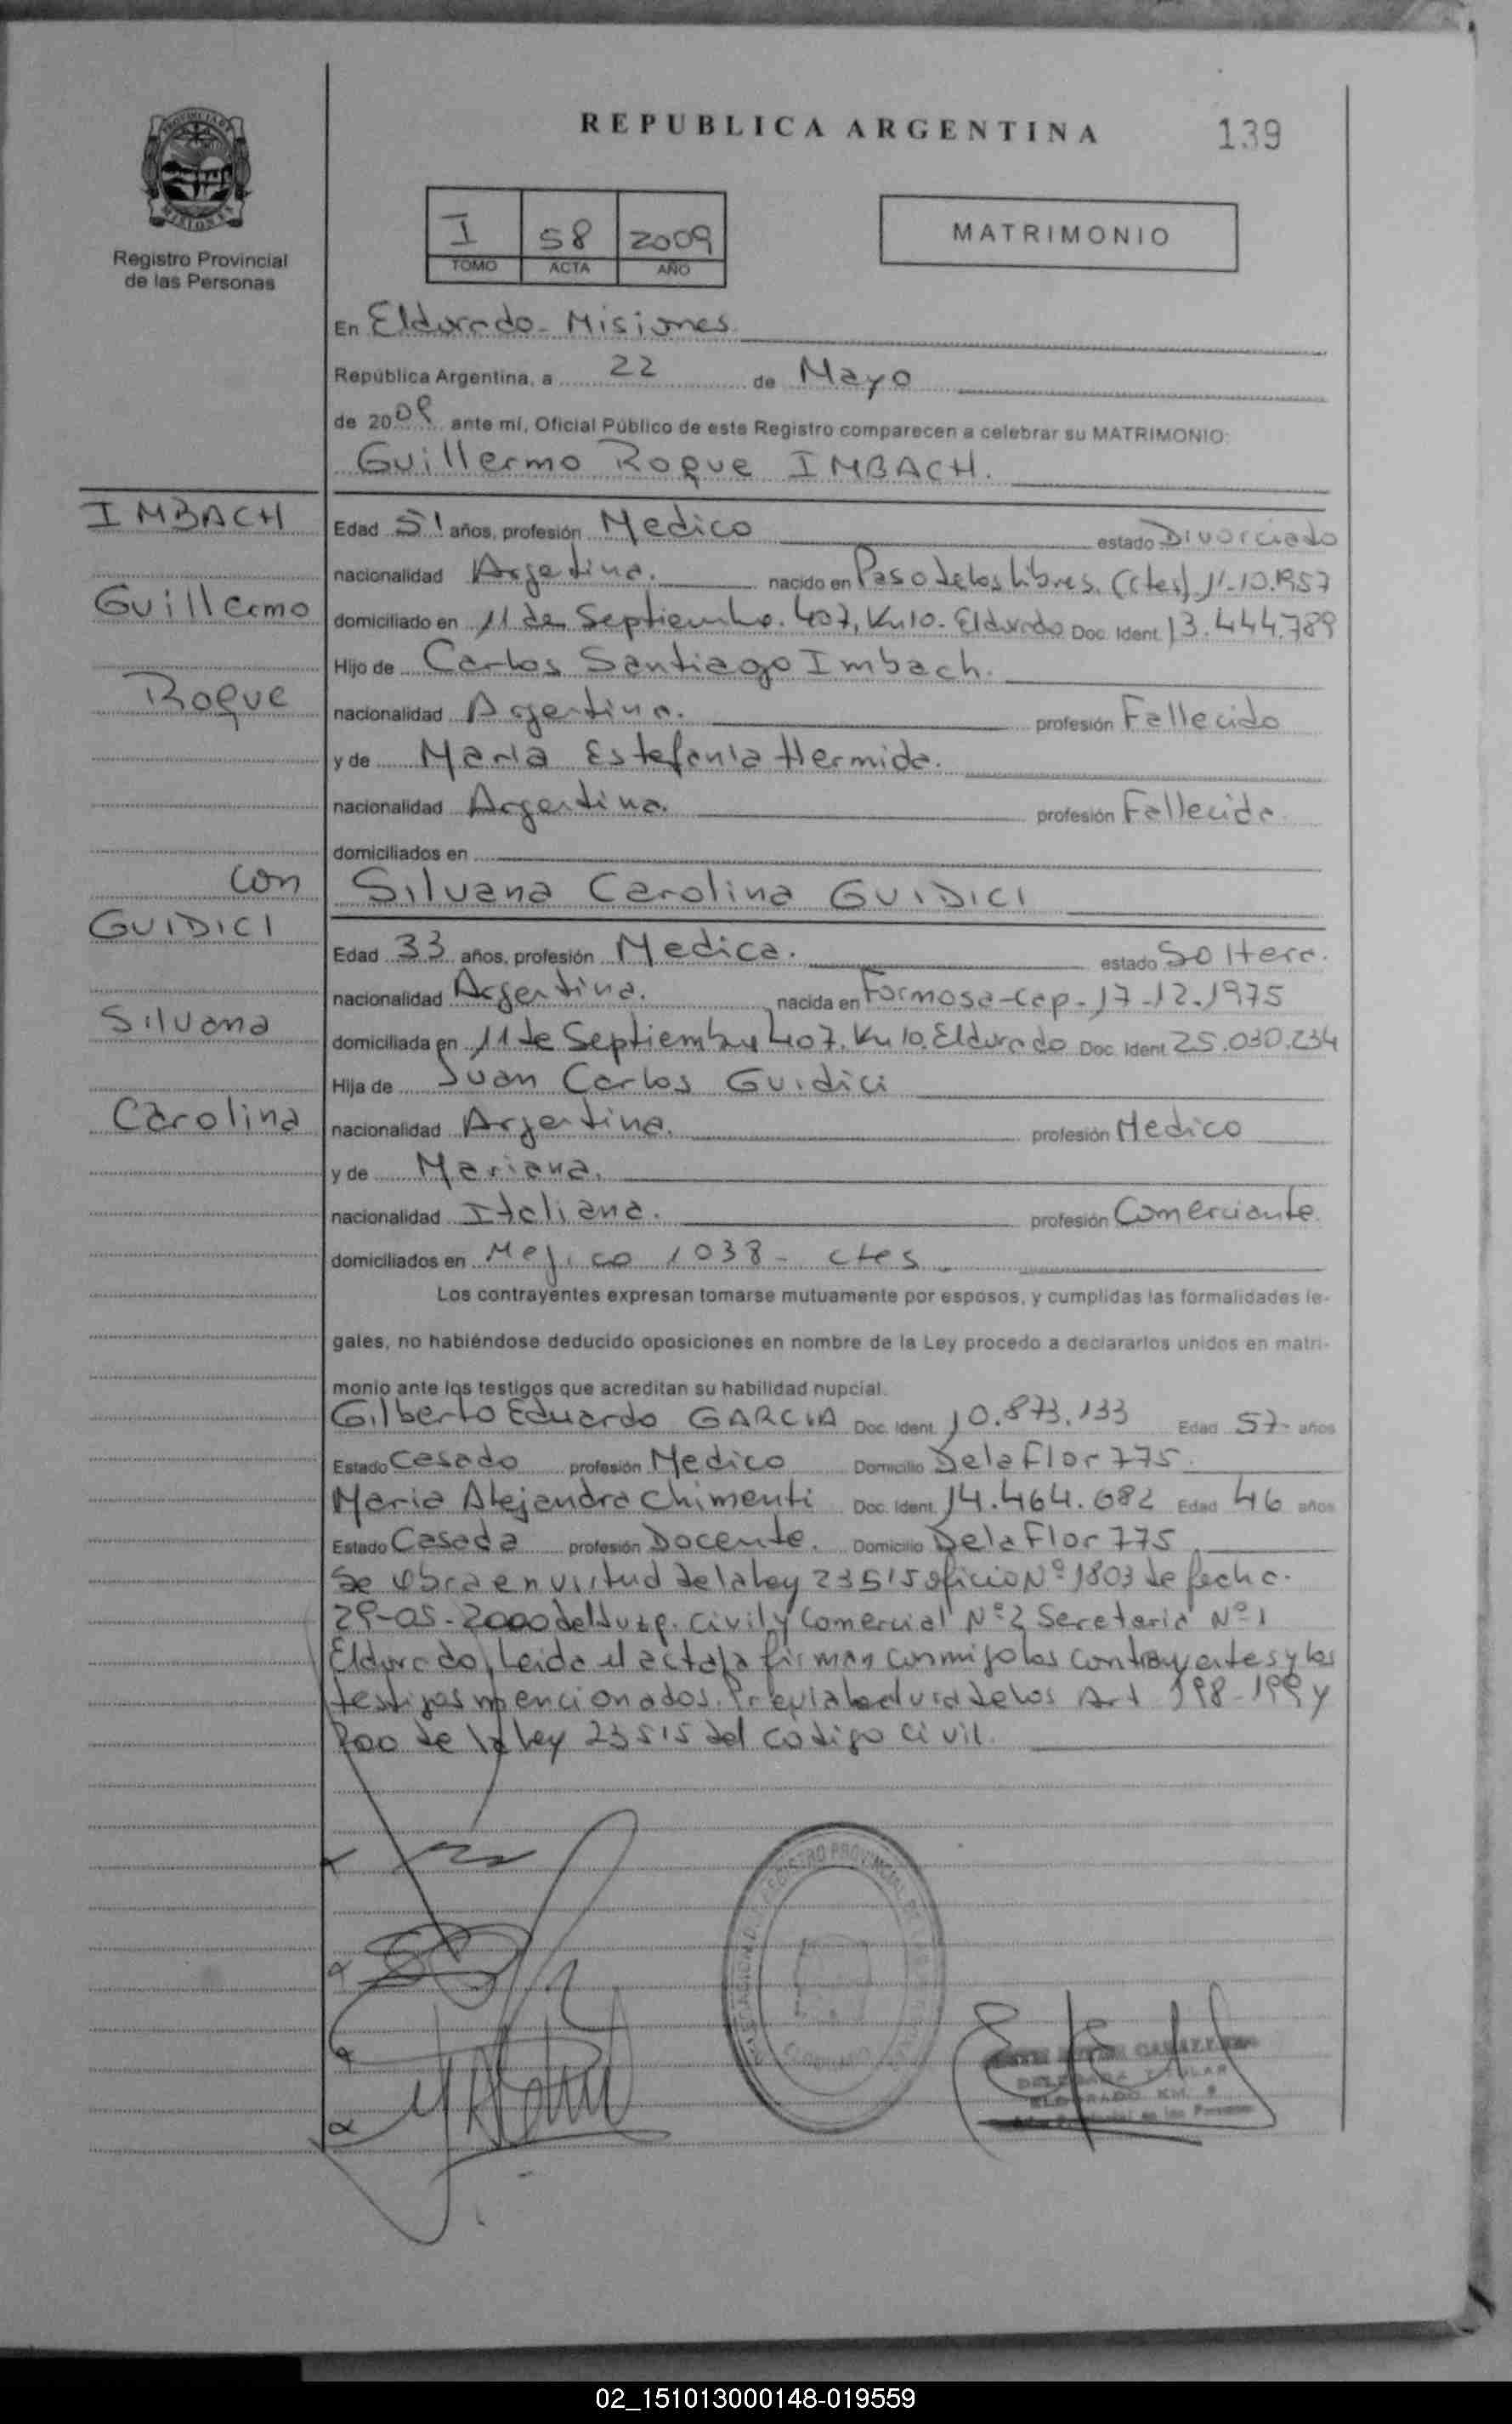 REPUBLICA ARGENTINA
139
PROVINCIA DE
MISIONES
Registro Provincial
de las Personas
I 58 2009
TOMO ACTA AÑO
MATRIMONIO
En Eldorado - Misiones
República Argentina, a 22 de Mayo
de 2009 ante mí, Oficial Público de este Registro comparecen a celebrar su MATRIMONIO:
Guillermo Roque IMBACH.
IMBACH
Guillermo
Roque
con
GUIDICI
Silvana
Carolina
Edad 51 años, profesión Medico estado Divorciado
nacionalidad Argentina. nacido en Paso de los Libres. (Ctes) 1'-10.1957
domiciliado en 11 de Septiembre. 407, Km 10. Eldorado Doc. Ident. 13.444.789
Hijo de Carlos Santiago Imbach.
nacionalidad Argentina. profesión Fallecido
y de María Estefanía Hermida.
nacionalidad Argentina. profesión Fallecida
domiciliados en
Silvana Carolina GUIDICI
Edad 33 años, profesión Medica. estado Soltera.
nacionalidad Argentina. nacida en Formosa-Cap- 17-12.1975
domiciliada en 11 de Septiembre 407. Km 10. Eldorado Doc. Ident. 25.030.234
Hija de Juan Carlos Guidici
nacionalidad Argentina. profesión Medico
y de Mariana.
nacionalidad Italiana. profesión Comerciante.
domiciliados en Mejico 1038 - ctes
Los contrayentes expresan tomarse mutuamente por esposos, y cumplidas las formalidades le-
gales, no habiéndose deducido oposiciones en nombre de la Ley procedo a declararlos unidos en matri-
monio ante los testigos que acreditan su habilidad nupcial.
Gilberto Eduardo GARCIA Doc. Ident. 10.873.133 Edad 57- años
Estado Casado profesión Medico Domicilio De la Flor 775.
Maria Alejandra Chimenti Doc. Ident. 14.464.082 Edad 46 años
Estado Casada profesión Docente. Domicilio De la Flor 775
Se obra en virtud de la Ley 23515 oficio Nº 1803 de fecha.
29-05-2000 del Juzg. Civil y Comercial Nº 2 Secretaria Nº 1
Eldorado, Leida el acta la firman conmigo los contrayentes y los
testigos mencionados. Previa lectura de los Art 198-199 y
200 de la Ley 23515 del codigo civil.
REGISTRO PROVINCIAL
ELDORADO
DELEGADA TITULAR
ELDORADO KM. 9
02_151013000148-019559